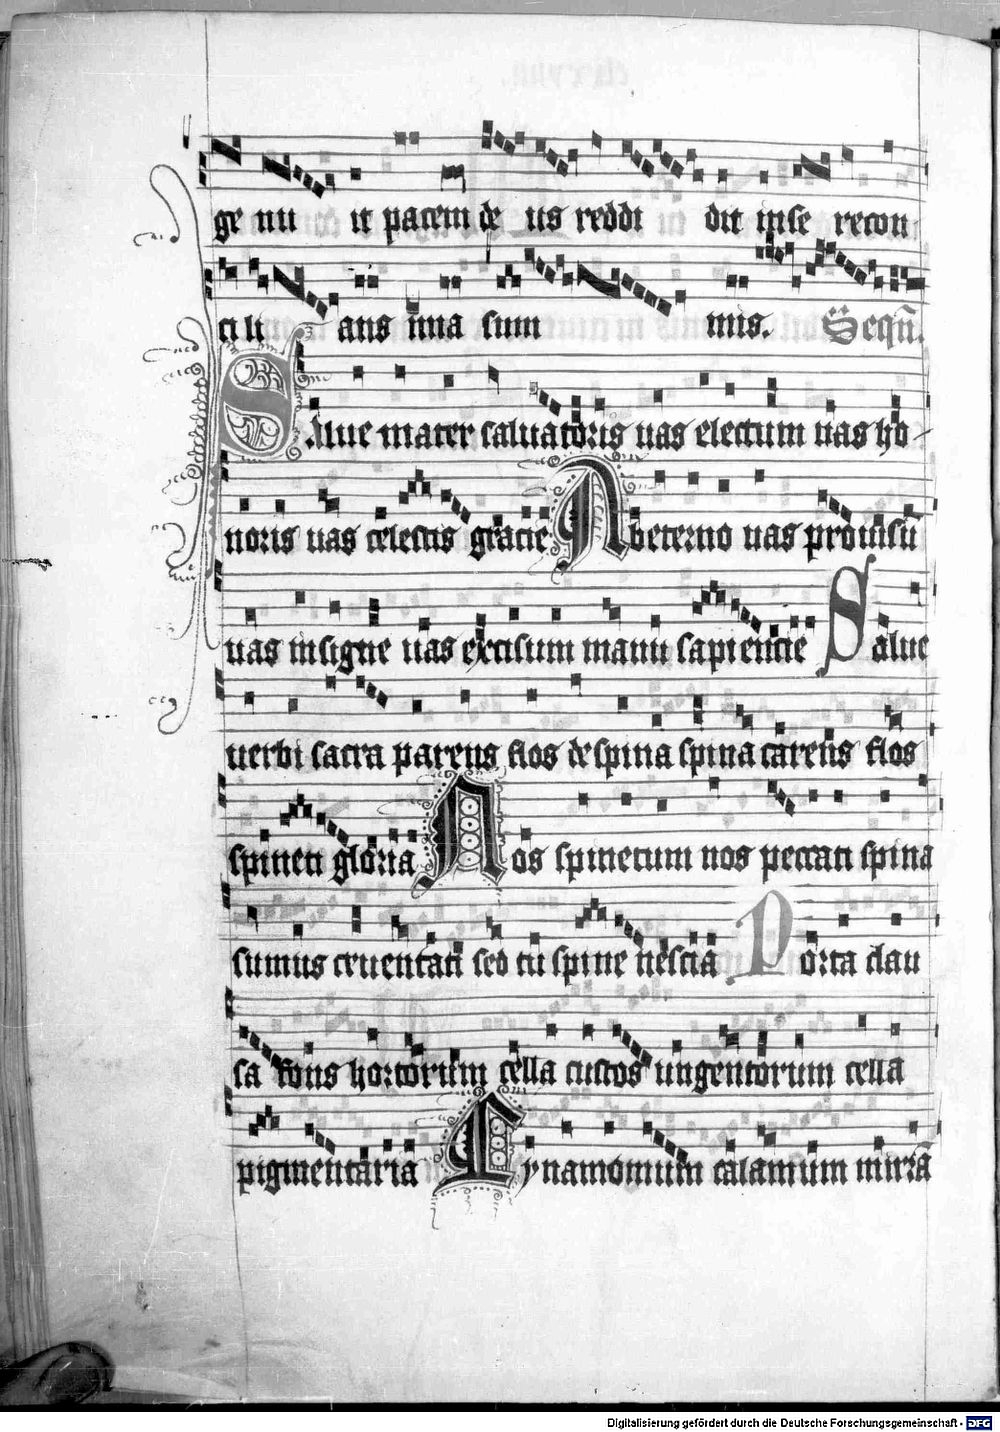 ge nu it pacem de us reddi dit inse recon
ci li ans ima sum mis. Sequē.
Salue mater saluatoris uas electum uas ho-
noris uas celestis gracie Abeterno uas prouisū
uas insigne uas excisum manu sapiencie Salue
uerbi sacra parens flos de spina spina carens flos
spineti gloria Nos spinetum nos peccati spina
sumus cruentati sed tu spine nescia Porta clau
sa fons hortorum cella custos ungentorum cella
pigmentaria Cynamomum calamum mirrā
Digitalisierung gefördert durch die Deutsche Forschungsgemeinschaft - DFG